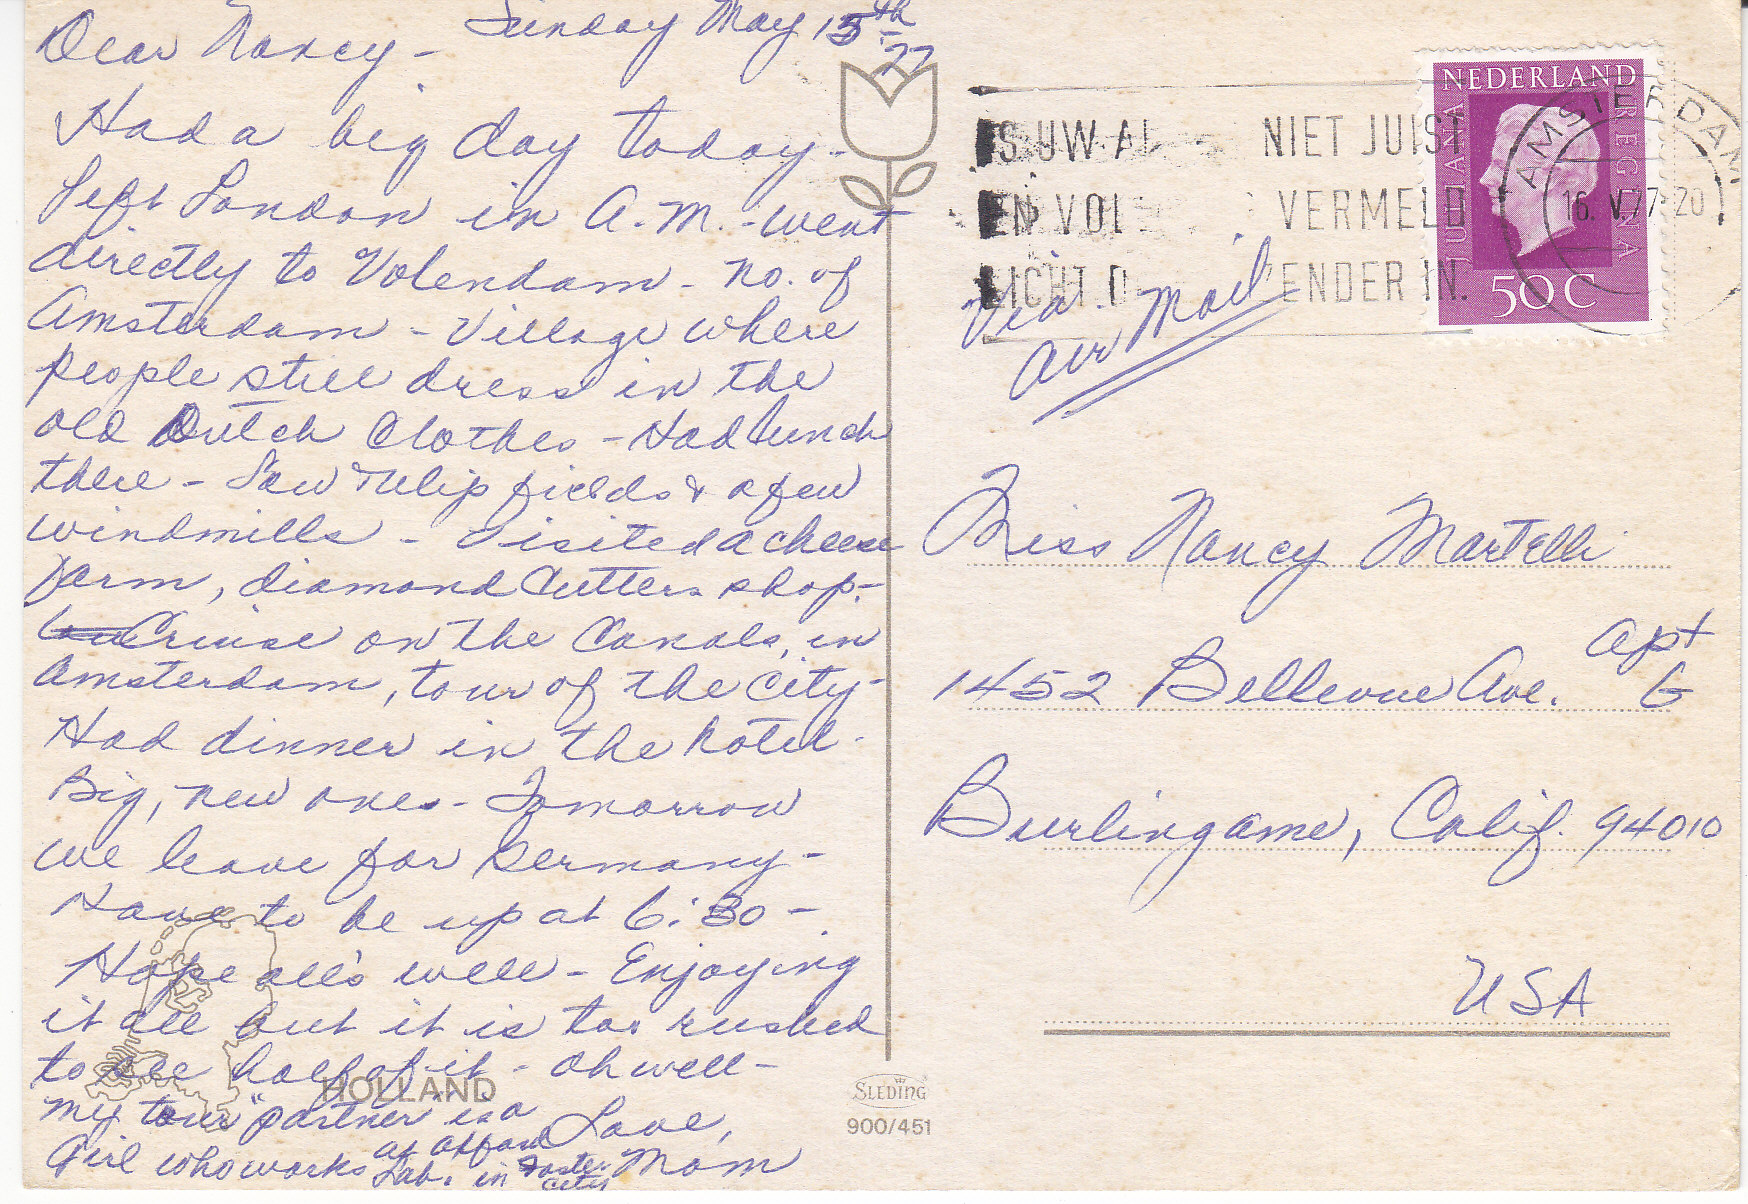 Sunday May 15th
'77
Dear Nancy -
Had a big day today -
Left London in A.M. - went
directly to Volendam - no. of
Amsterdam - Village where
people still dress in the
old Dutch Clothes - Had lunch
there - Saw Tulip fields & a few
windmills - Visited a cheese
Farm, diamond Cutters shop -
Cruise on the Canals, in
Amsterdam, tour of the City -
Had dinner in the hotel -
Big, new ones - Tomorrow
we leave for Germany -
Have to be up at 6:30 -
Hope all's well - Enjoying
it all but it is too rushed
to see half of it - oh well -
My tour "partner" is a
Girl who works at
Lab. in Foster
City
Love,
Mom
HOLLAND
SLEDING
900/451
IS UW A NIET JUIST
EN VOL VERMELD
LICHT D ENDER IN.
NEDERLAND
JULIANA REGINA
50 C
AMSTERDAM
16. V.77 20
Via
Air Mail
Miss Nancy Martelli
1452 Bellevue Ave. Apt
G
Burlingame, Calif. 94010
USA